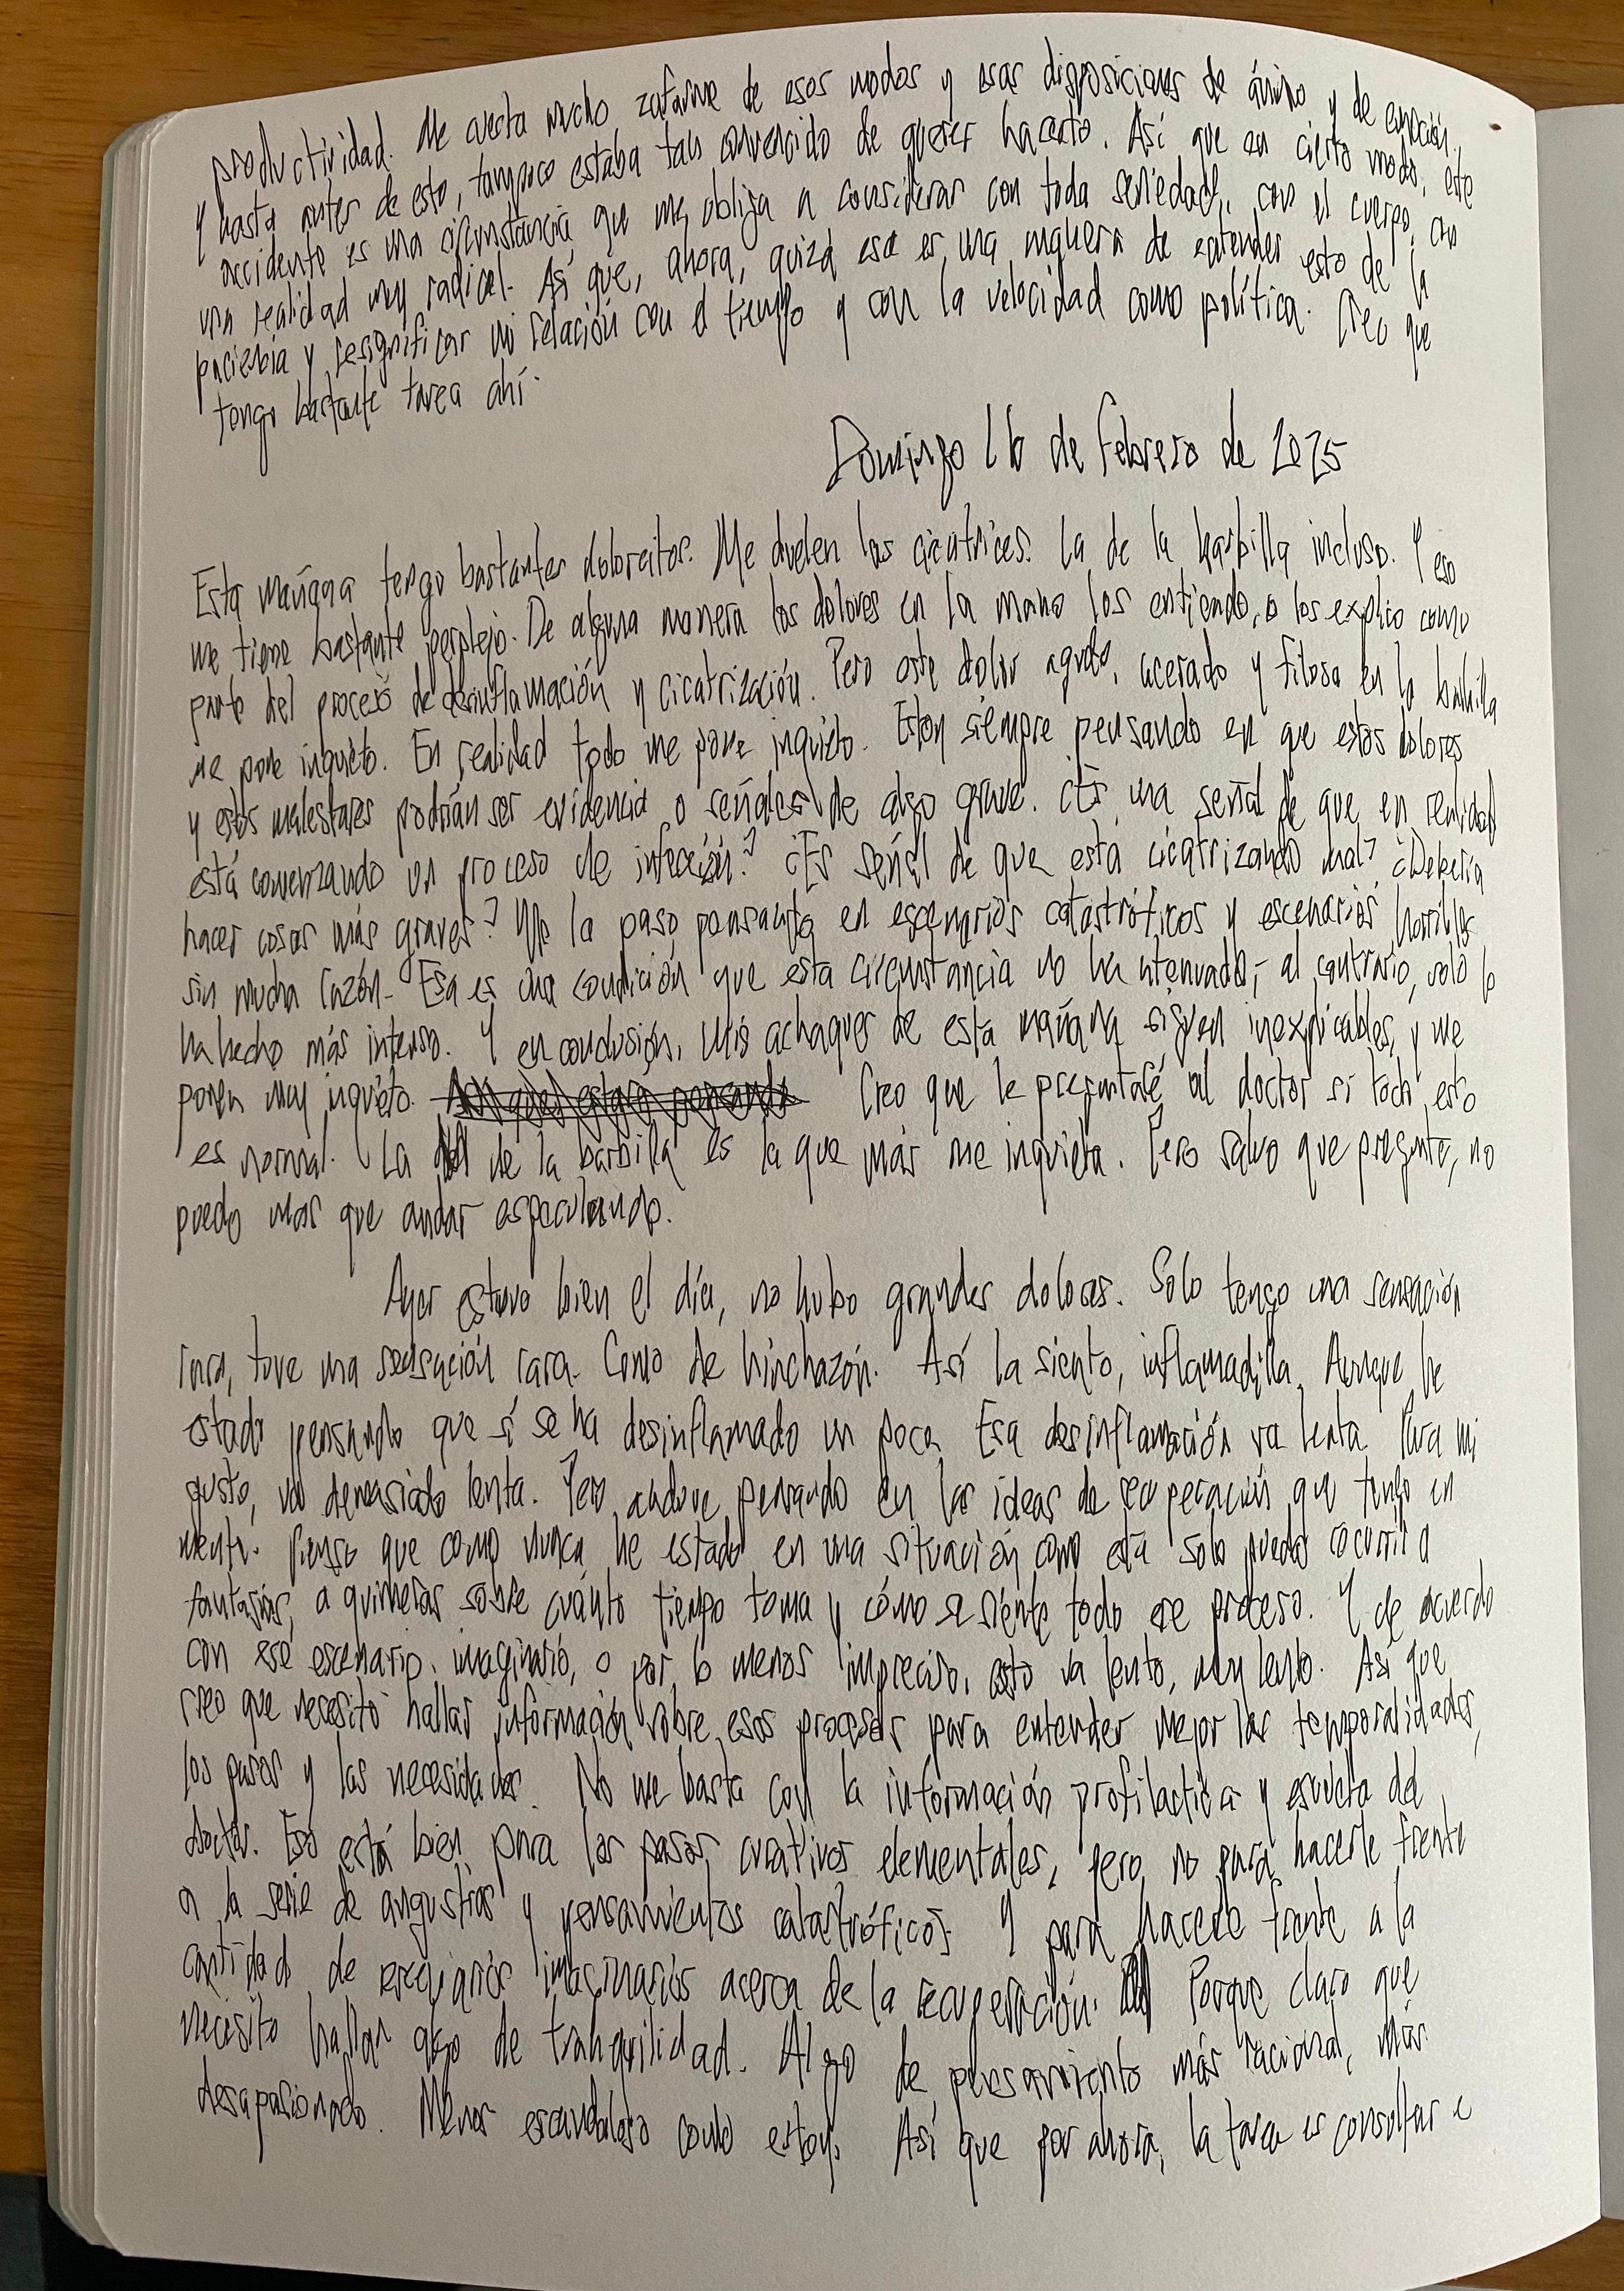 productividad. Me cuesta mucho zafarme de esos modos y esas disposiciones de ánimo y de emoción.
Y hasta antes de esto, tampoco estaba tan convencido de querer hacerlo. Así que en cierto modo, este
accidente es una circunstancia que me obliga a considerar con toda seriedad, con el cuerpo, con
una realidad muy radical. Así que, ahora, quizá esa es una manera de entender esto de la
paciencia y resignificar mi relación con el tiempo y con la velocidad como política. Creo que
tengo bastante tarea ahí.
Domingo 16 de Febrero de 2025
Esta mañana tengo bastantes dolorcitos. Me duelen las cicatrices. La de la barbilla incluso. Y eso
me tiene bastante perplejo. De alguna manera los dolores en la mano los entiendo, o los explico como
parte del proceso de desinflamación y cicatrización. Pero este dolor agudo, acerado y filoso en la barbilla
me pone inquieto. En realidad todo me pone inquieto. Estoy siempre pensando en que estos dolores
y estos malestares podrían ser evidencia o señales de algo grave. ¿Es una señal de que en realidad
está comenzando un proceso de infección? ¿Es señal de que está cicatrizando mal? ¿Debería
hacer cosas más graves? Me la paso pensando en escenarios catastróficos y escenarios horribles
sin mucha razón. Esa es una condición que esta circunstancia no ha atenuado, al contrario, solo lo
ha hecho más intenso. Y en conclusión, mis achaques de esta mañana siguen inexplicables, y me
ponen muy inquieto. Creo que le preguntaré al doctor si todo esto
es normal. La de la barbilla es la que más me inquieta. Pero salvo que pregunte, no
puedo más que andar especulando.
Ayer estuvo bien el día, no hubo grandes dolores. Solo tengo una sensación
rara, tuve una sensación rara. Como de hinchazón. Así la siento, inflamadilla. Aunque he
estado pensando que sí se ha desinflamado un poco. Esa desinflamación va lenta. Para mi
gusto, va demasiado lenta. Pero anduve pensando en las ideas de recuperación que tengo en
mente. Pienso que como nunca he estado en una situación como esta solo puedo recurrir a
fantasías, a quimeras sobre cuánto tiempo toma y cómo se siente todo ese proceso. Y de acuerdo
con ese escenario imaginario, o por lo menos impreciso, esto va lento, muy lento. Así que
creo que necesito hallar información sobre esos procesos para entender mejor las temporalidades,
los pasos y las necesidades. No me basta con la información profiláctica y escueta del
doctor. Eso está bien para los pasos curativos elementales, pero no para hacerle frente
a la serie de angustias y pensamientos catastróficos. Y para hacerle frente a la
cantidad de escenarios imaginarios acerca de la recuperación. Porque claro que
necesito hallar algo de tranquilidad. Algo de pensamiento más racional, más
desapasionado. Menos escandaloso como estoy. Así que por ahora, la tarea es consultar e